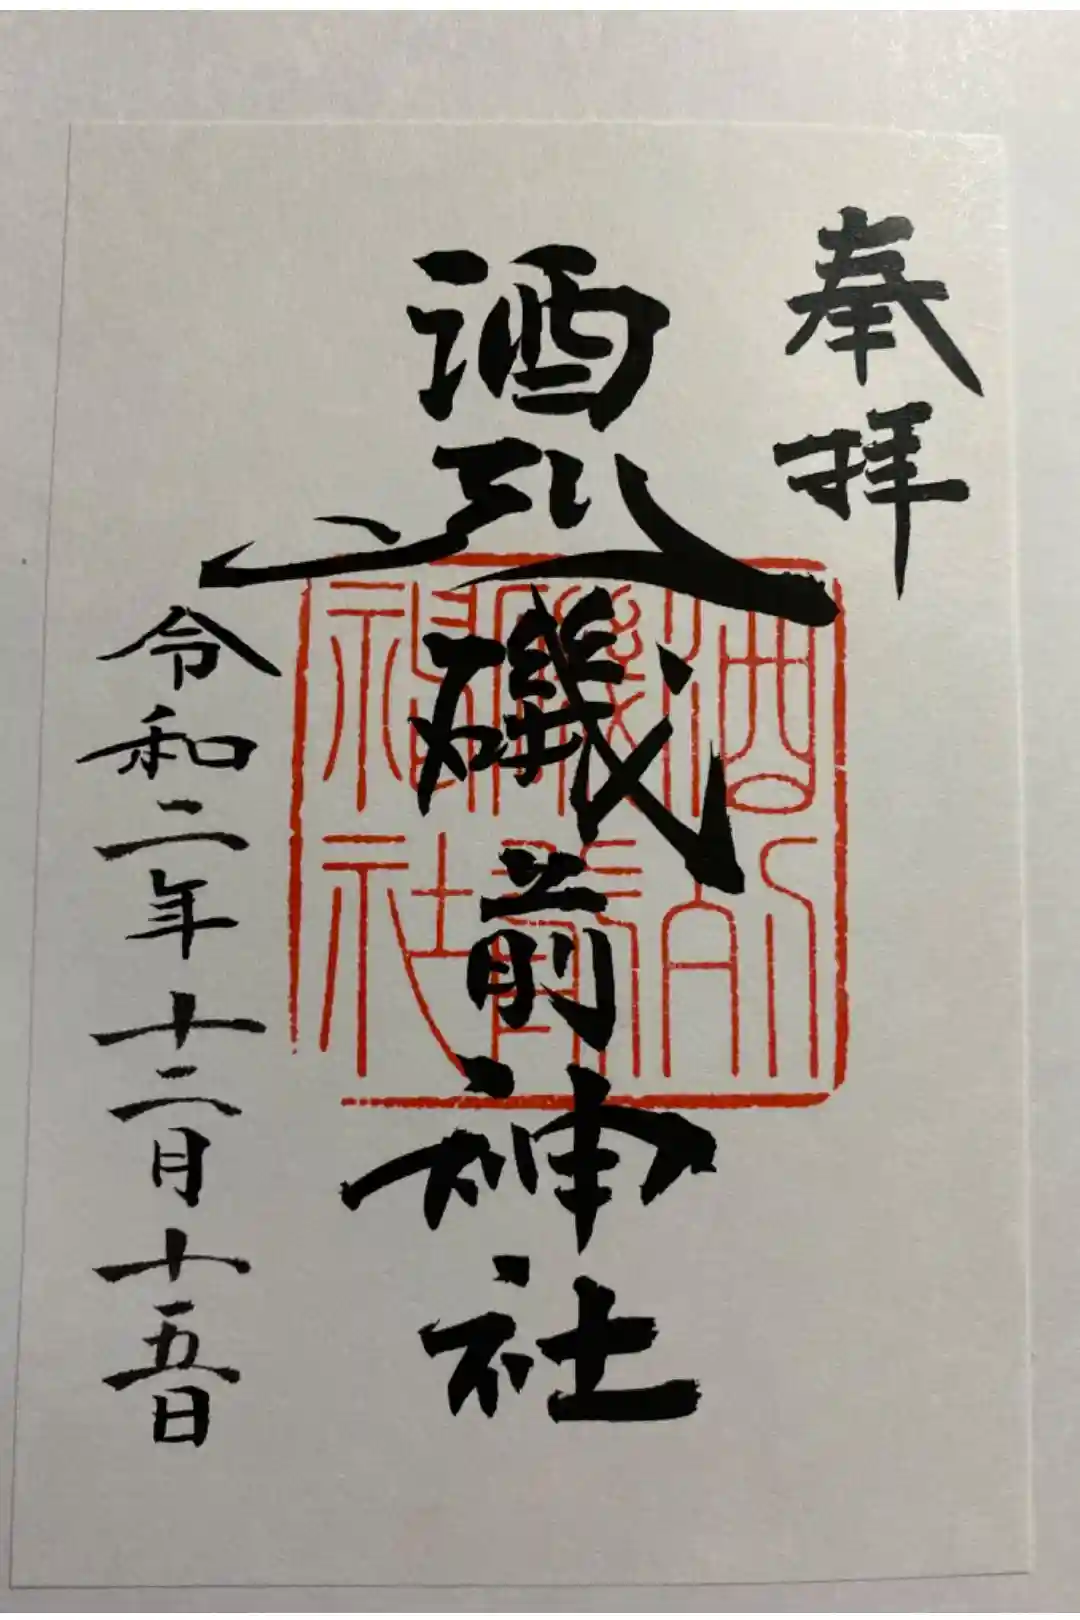 奉拝
酒列磯前神社
令和二年十二月十五日
酒列
磯前
神社